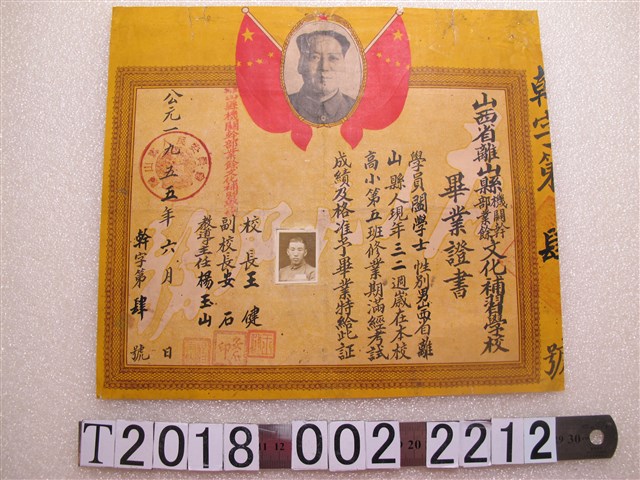 山西省離山縣機關幹部業餘文化補習學校
畢業證書
學員閻學士性別男山西省離
山縣人現年三二週歲在本校
高小第五班修業期滿經考試
成績及格准予畢業特給此証
校長王健
副校長安石
教導主任楊玉山
公元一九五五年六月 日
幹字第肆號
幹字第肆號
T2018 002 2212